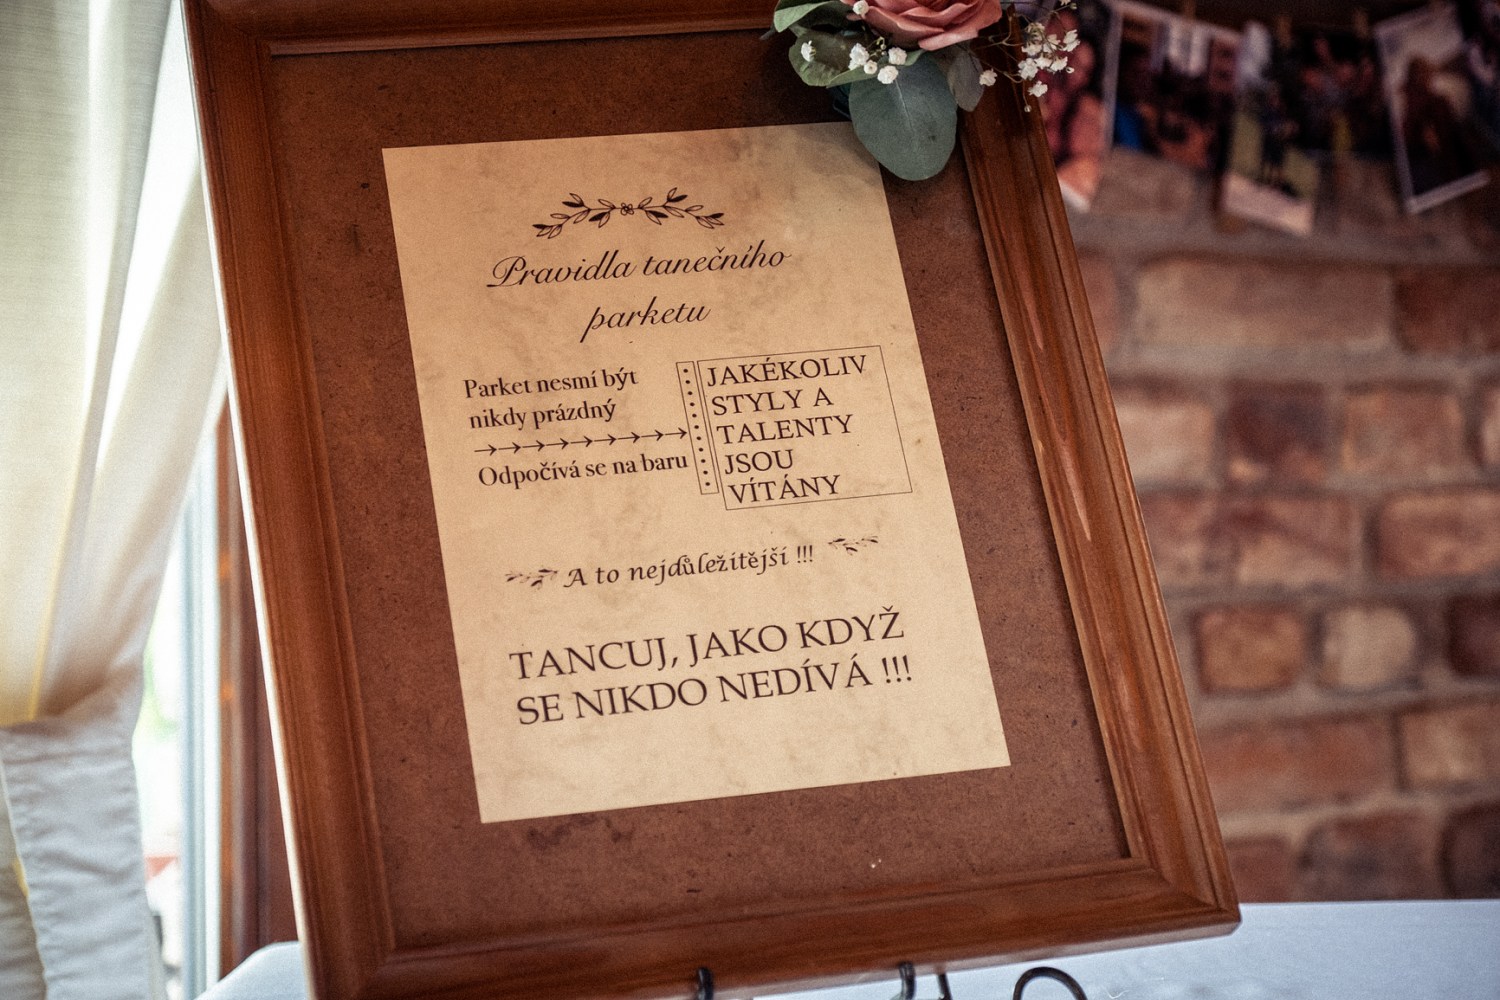 Pravidla tanečního
parketu
Parket nesmí být
nikdy prázdný
Odpočívá se na baru
JAKÉKOLIV
STYLY A
TALENTY
JSOU
VÍTÁNY
A to nejdůležitější !!!
TANCUJ, JAKO KDYŽ
SE NIKDO NEDÍVÁ !!!